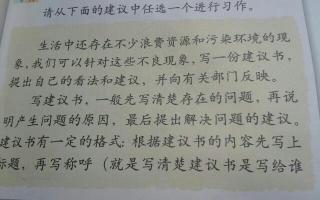 请从下面的建议中任选一个进行习作。
生活中还存在不少浪费资源和污染环境的现
象，我们可以针对这些不良现象，写一份建议书，
提出自己的看法和建议，并向有关部门反映。
写建议书，一般先写清楚存在的问题，再说
明产生问题的原因，最后提出解决问题的建议。
建议书有一定的格式：根据建议书的内容先写上
标题，再写称呼（就是写清楚建议书是写给谁